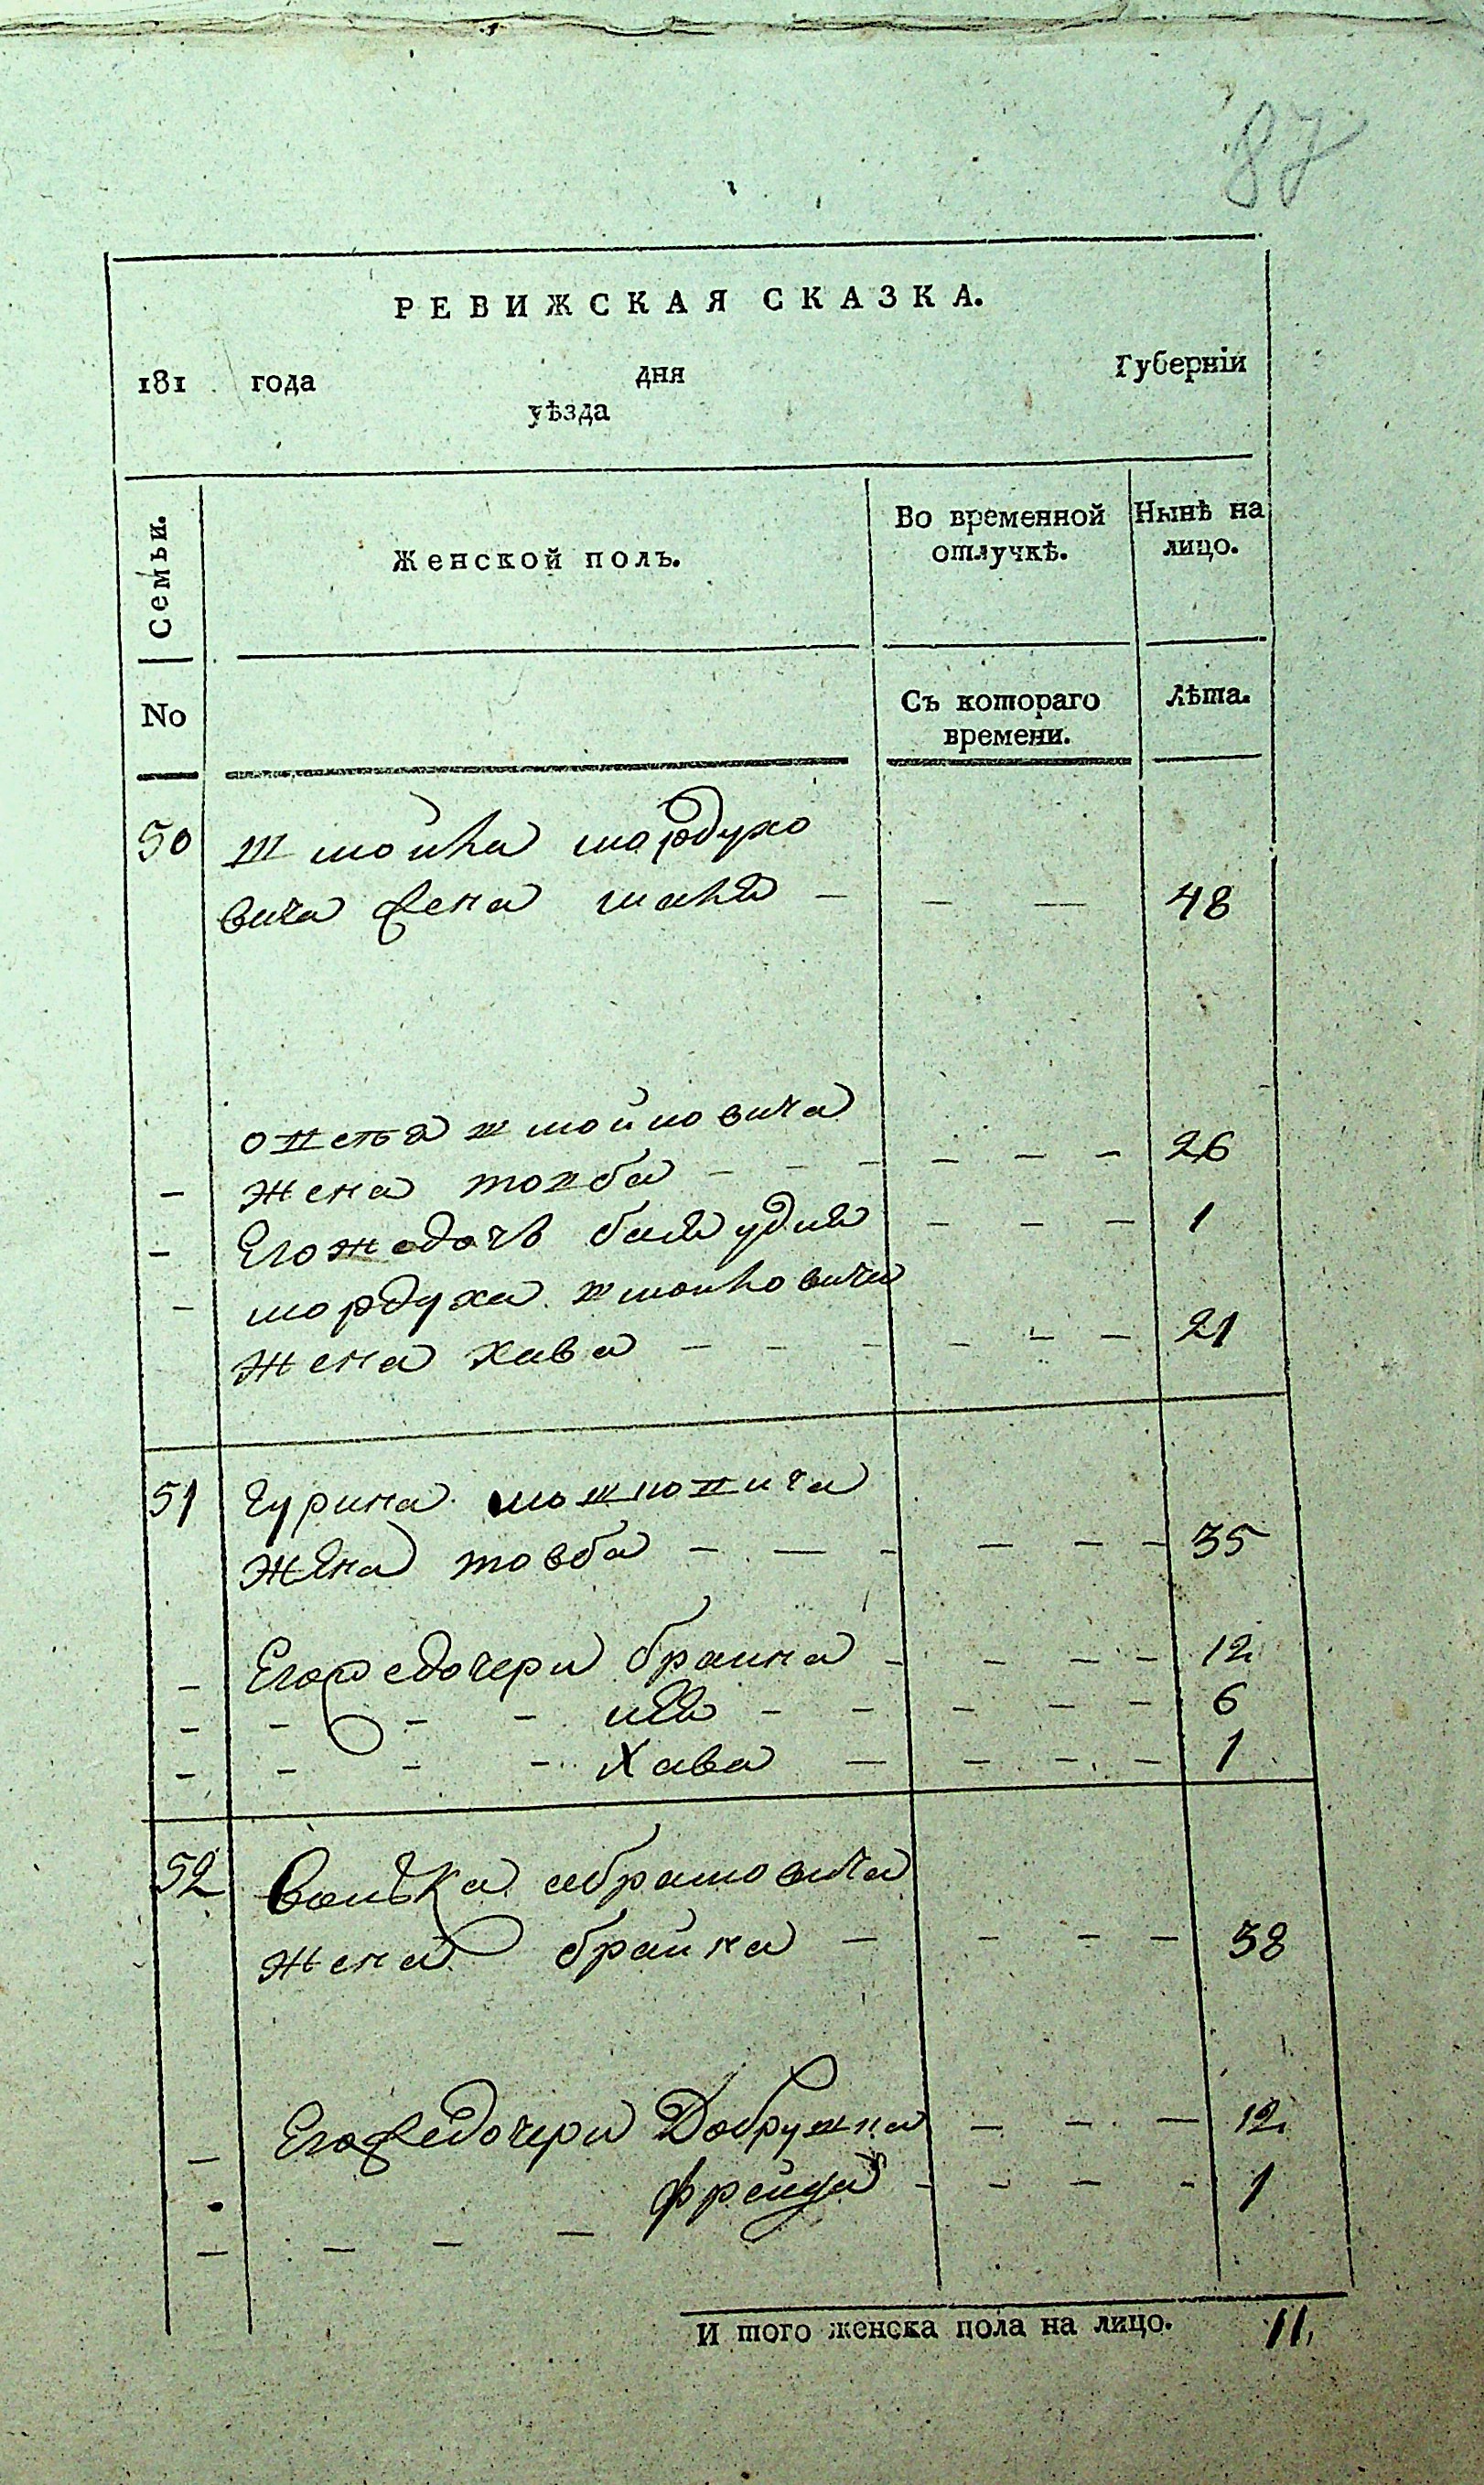 87
РЕВИЖСКАЯ СКАЗКА.
181 года дня Губерніи
уѣзда
Семьи.
Женской полъ.
Во временной отлучкѣ.
Нынѣ на лицо.
No
Съ котораго времени.
Лѣта.
50 Шмойла мордухо
вича жена — — — 48
жена — — — — — — 26
Его же дочь — — — 1
мордуха шмойловича
жена хава — — — — — — 21
51
жена товба — — — — — — 35
Его же дочери браина — — — — 12
— — — — — — — — 6
— — — Хава — — — — 1
52 абрамовича
жена брайна — — — — 38
Его же дочери Добрушка — — — 12
— — — фрейда — — — — 1
И того женска пола на лицо. 11.